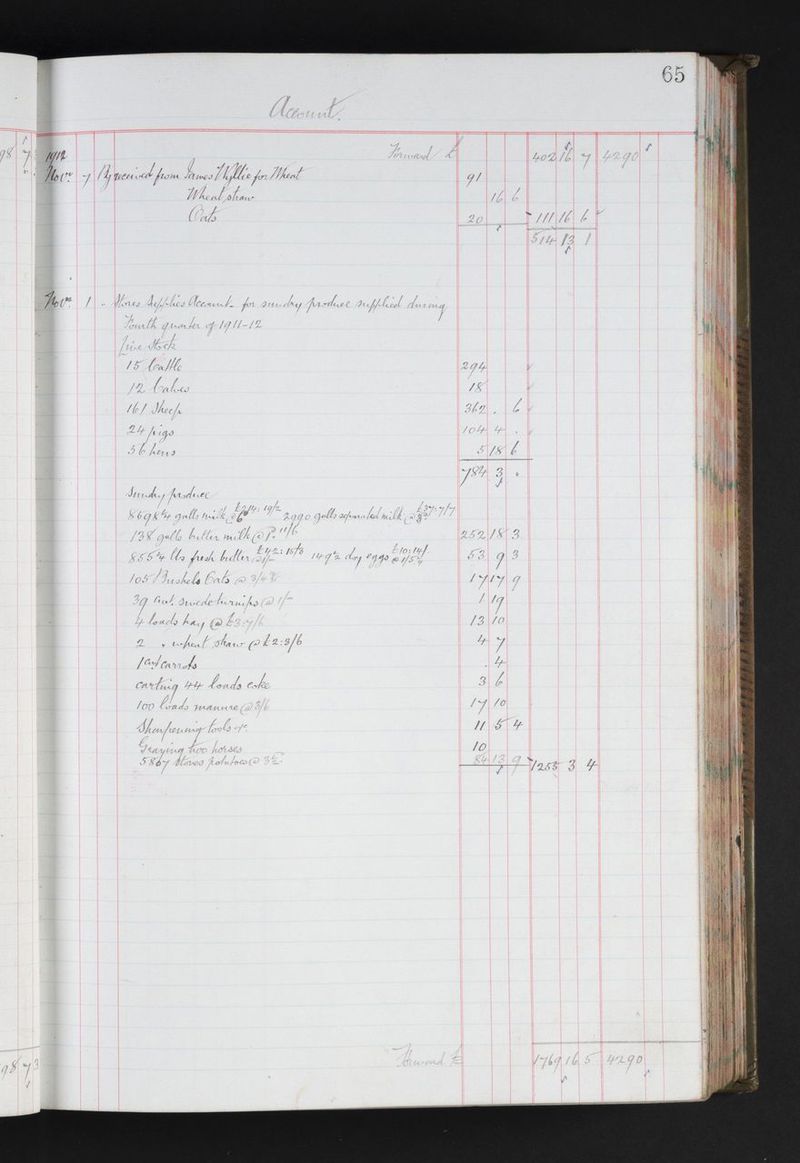 65
Account.
1912 Forward £ 402 16 7 4290
Novr 7 By received from James Wyllie for Wheat 91
Wheat straw 16 6
Oats 20 111 16 6
514 13 1
Novr 1 Stores Supplies Account for sundry produce supplied during
Fourth quarter of 1911-12
Live Stock
15 Cattle 294
12 Calves 18
161 Sheep 362 . 6
24 pigs 104 4 .
56 hens 5 18 6
784 3 .
Sundry produce
8698¼ galls milk @ 6d 2990 galls separated milk @ £37:7/7
138 galls butter milk @ 1d 11/6 252 18 3
855¼ lbs fresh butter @ 1/- £42:15/3 149½ doz eggs @ 1/5¼ £10:14/- 53 9 3
105 Bushels Oats @ 3/4¾ 17 17 9
39 cwt. swede turnips @ 1/- 1 19
4 loads hay @ £3:7/6 13 10
2 " wheat straw @ £2:3/6 4 7
1 cwt carrots . 4
carting 44 loads coke 3 6
100 loads manure @ 3/6 17 10
Sharpening tools &c. 11 5 4
Grazing two horses 10
5867 stones potatoes @ 3½d 84 13 9 1255 3 4
Forward £ 1769 16 5 4290
98 7
98 7 3